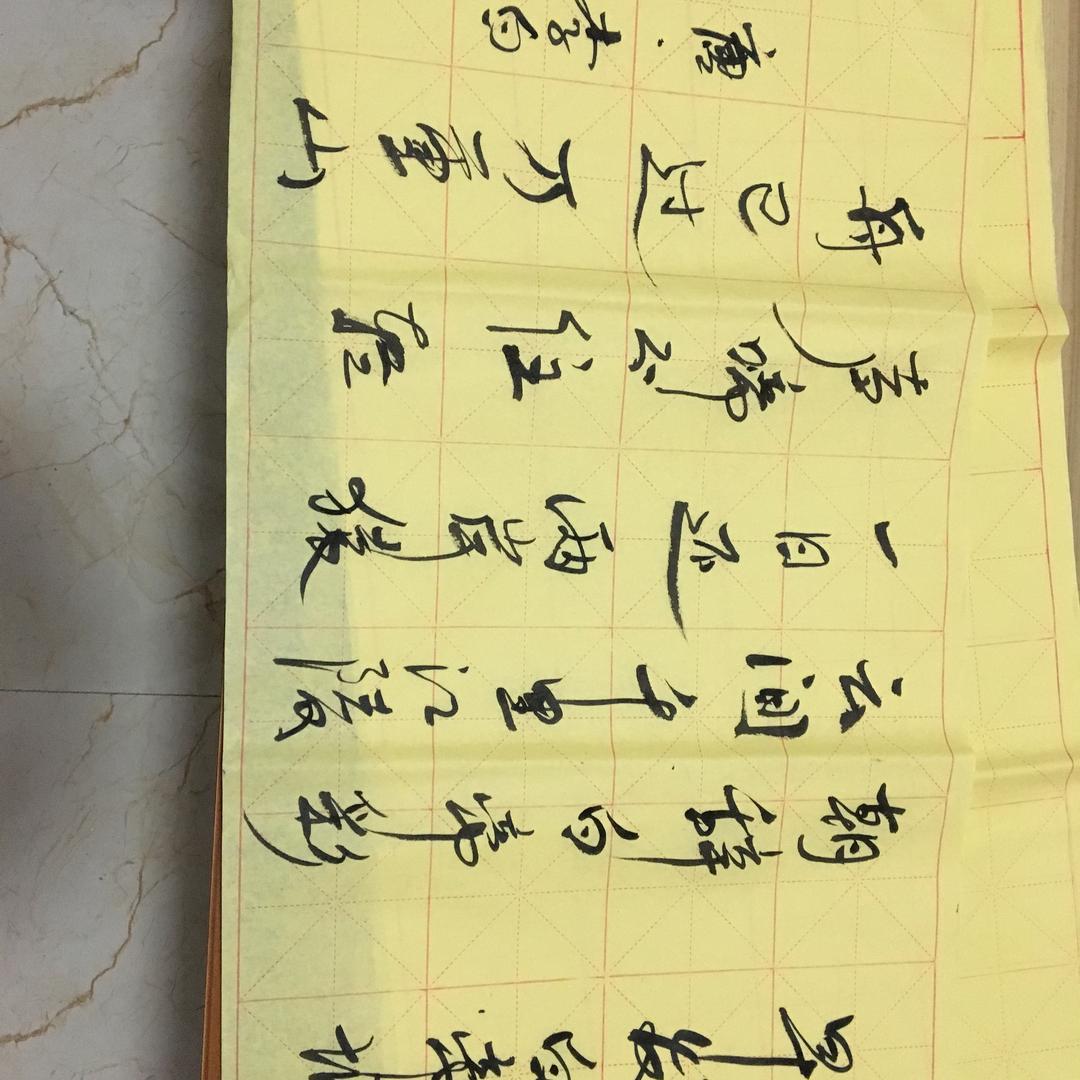 早发白帝城
朝辞白帝彩
云间千里江陵
一日还两岸猿
声啼不住轻
舟已过万重山
唐·李白